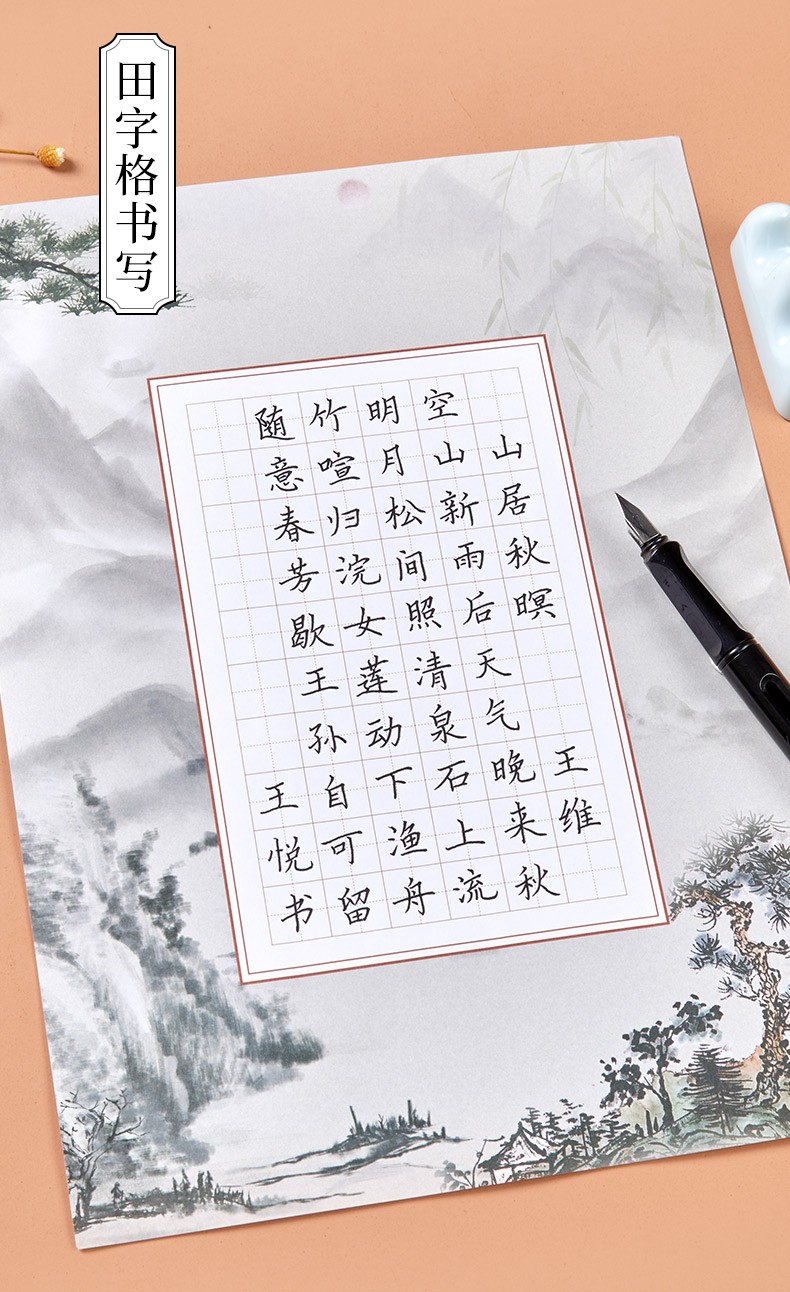 田字格书写
山居秋暝 王维
空山新雨后天气晚来秋
明月松间照清泉石上流
竹喧归浣女莲动下渔舟
随意春芳歇王孙自可留
王悦书